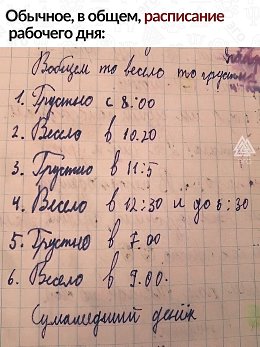 Обычное, в общем, расписание
рабочего дня:
Вобщем то весело то грустно
1. Грустно с 8:00
2. Весело в 10.20
3. Грустно в 11:5
4. Весело в 12:30 и до 6:30
5. Грустно в 7.00
6. Весело в 9.00.
Сумашедший денёк